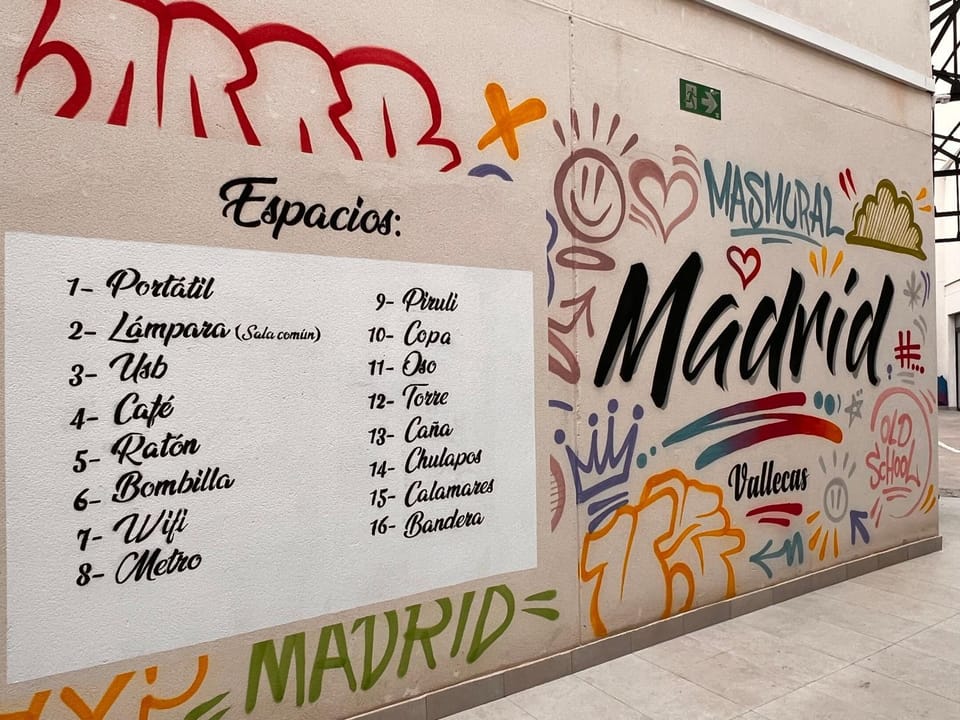 Espacios:
1- Portátil
2- Lámpara (Sala común)
3- Usb
4- Café
5- Ratón
6- Bombilla
7- Wifi
8- Metro
9- Piruli
10- Copa
11- Oso
12- Torre
13- Caña
14- Chulapos
15- Calamares
16- Bandera
MADRID
MASMURAL
Madrid
#...
OLD
SCHOOL
Vallecas